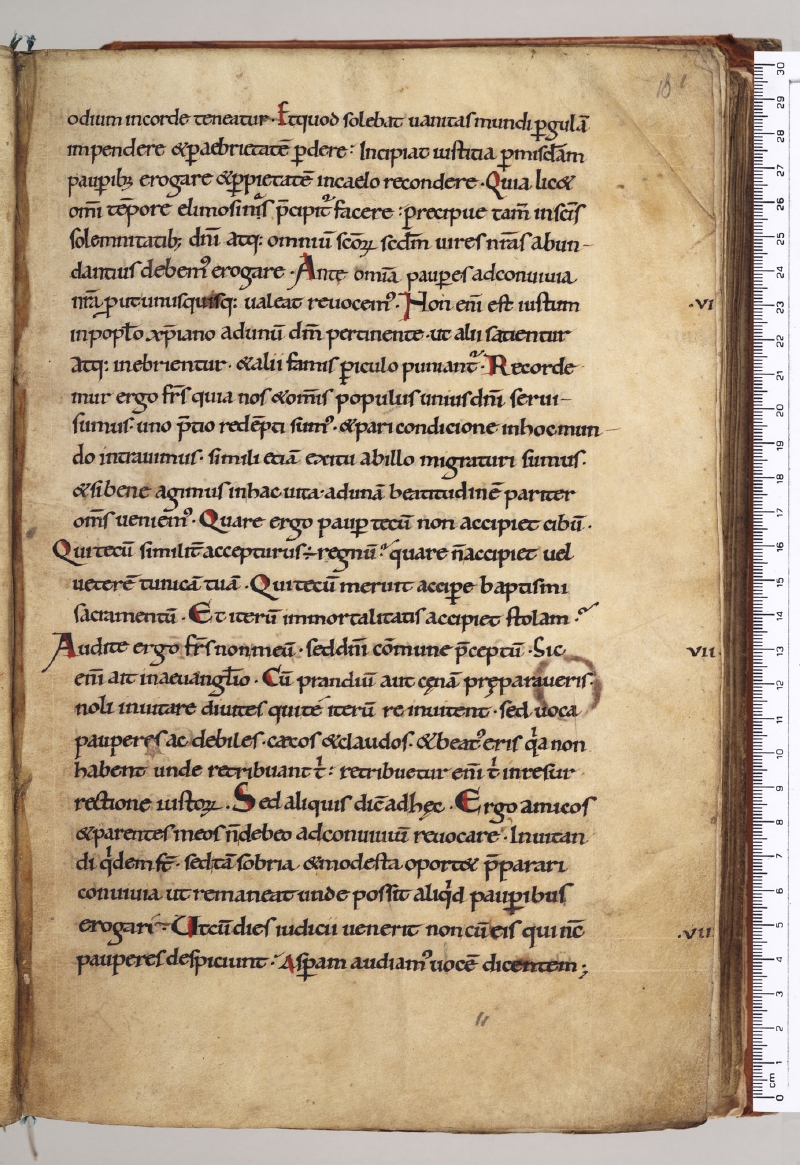 odium incorde teneatur. Etquod solebat uanitas mundi ꝑgulā
impendere &ꝑaebrietatē ꝑdere: Incipiat iustitia ꝑmisc̄dam
pauꝑibꝫ erogare &ꝓpietatē incaelo recondere. Quia lic&
om̄i tēpore elimosinis p̄cipit᷒ facere: precipue tam̄ insc̄is
solemnitatibꝫ dn̄i atq: omniū sc̄oꝝ secd̄m uires nr̄as abun-
dantius debem᷒ erogare. Ante omīa pauperes adconuiuia
nr̄a ꝓut unusquisq: ualeat reuocem᷒. Non eni̅ est iustum
.VI
inpopl̄o xp̄iano adunū dn̄m pertinente. ut alii satientur
atq: inebrientur. &alii famis ꝑiculo puniant᷒. Recorde
mur ergo fr̄s quia nos &om̄is populus unius dn̄i serui-
sumus. uno p̄tio redēpti sum᷒. &pari condicione inhoc mun-
do intrauimus. simili etiā exitu abillo migraturi sumus.
&sibene agimus inhac uita. adunā beatitudinē pariter
om̄s ueniem᷒. Quare ergo pauꝑ tecū non accipiet cibū.
Qui tecū similit̄ accepturus ÷ regnū. quare n̄accipiet uel
ueterē tunicā tuā. Qui tecū meruit acciꝑe baptismi
sacramentū. Et iterū immortalitatis accipiet stolam.
Audite ergo fr̄s non meū. sed dn̄i cōmune p̄ceptū. Sic
VII
eni̅ ait inaeuangl̄io. Cū prandiū aut cęnā pręparaueris.
noli inuitare diuites quite iterū reinuitent. sed uoca
pauperes ac debiles. caecos &claudos. &beat᷒ eris qͥa non
habent unde retribuant tͥ: retribuetur eni̅ tͥ inresur
rectione iustoꝝ. Sed aliquis dic̄ adhęc. Ergo amicos
&parentes meos n̄debeo adconuiuiū reuocare. Inuitan
di qͥdem s̄t. sed tā sobria &modesta oport& p̄parari
conuiuia ut remaneat unde possīt aliqͥd pauꝑibus
erogari. Utcū dies iudicii uenerit non cū eis qui nc̄
.VII
pauperes despiciunt. Asꝑam audiam᷒ uocē dicentem;